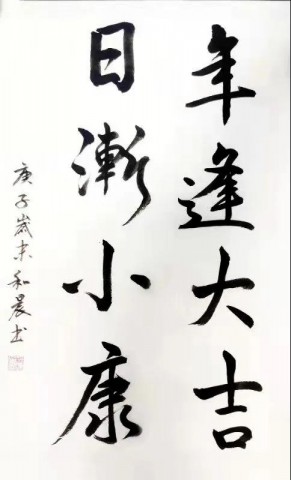 年逢大吉
日渐小康
庚子岁末和晨书